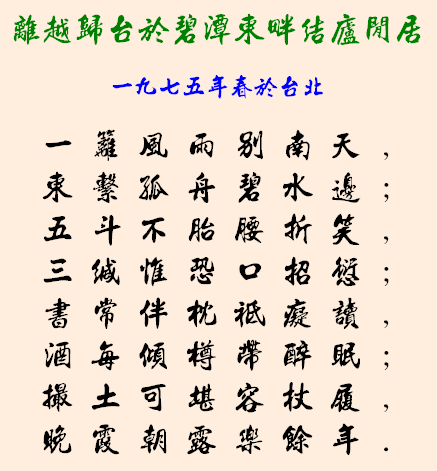 離越歸台於碧潭東畔結廬閒居
一九七五年春於台北
一籬風雨別南天，
東繫孤舟碧水邊；
五斗不胎腰折笑，
三緘惟恐口招愆；
書常伴枕祗癡讀，
酒每傾樽帶醉眠；
撮土可堪容杖履，
晚霞朝露樂餘年．